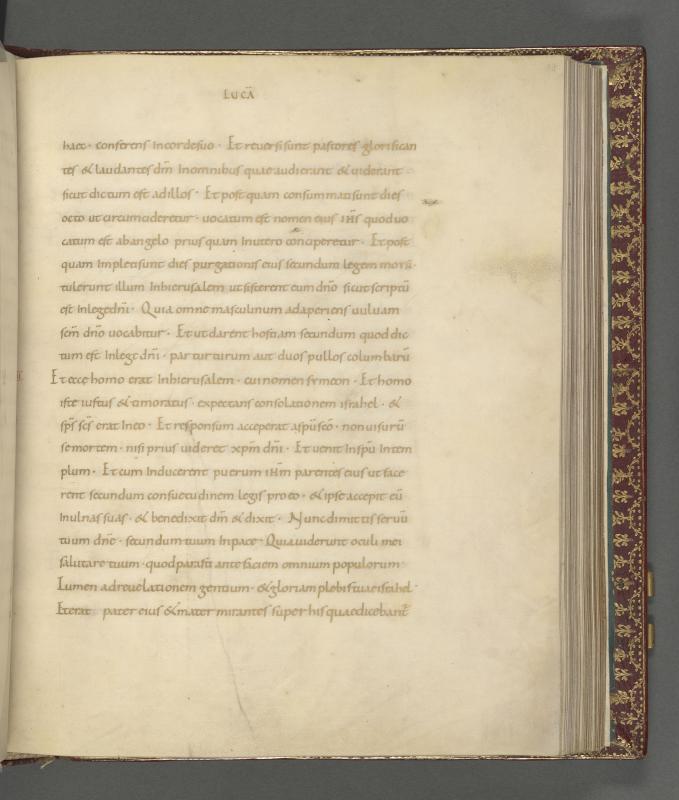 LUCĀ
haec · conferens Incordesuo · Et reuersi sunt pastores · glorifican
tes & laudantes dm̄ Inomnibus quae audierant & uiderant
sicut dictum est adillos · Et post quam consummatisunt dies
octo ut circumcideretur · uocatum est nomen eius IHS̄ quoduo
catum est abangelo prius quam Inutero conciperetur · Et post
quam Impletisunt dies purgationis eius secundum legem
tulerunt illum Inhierusalem ut sisterent eum dn̄o sicut scriptū
est Inlegedn̄i · Quia omne masculinum adaperiens uuluam
scm̄ dn̄o uocabitur · Et ut darent hostiam secundum quod dic
tum est Inlege dn̄i · par turturum aut duos pullos columbarū
Et ecce homo erat Inhierusalem · cui nomen symeon · Et homo
iste iustus & timoratus · expectans consolationem israhel · &
sp̄s sc̄s erat Ineo · Et responsum acceperat asp̄usc̄o · non uisurū
se mortem · nisi prius uideret xp̄m dn̄i · Et uenit Insp̄u Intem
plum · Et cum Inducerent puerum IHm̄ parentes eius ut face
rent secundum consuetudinem legis pro eo · & ipse accepit eū
Inulnas suas · & benedixit dm̄ & dixit · Nunc dimittis seruū
tuum dn̄e · secundum tuum Inpace · Quia uiderunt oculi mei
salutare tuum · quod parasti ante faciem omnium populorum ·
Lumen adreuelationem gentium · & gloriam plebis tuae israhel ·
Et erat pater eius & mater mirantes super his quae dicebant